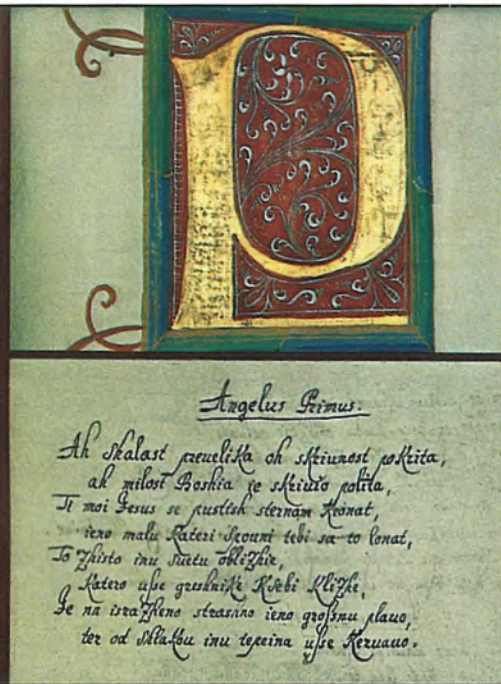 P
Angelus Primus.
Ah shalast prevelika oh skriunost pokrita,
ah milost Boshia je skriuio polita,
Ti moi Jesus se pustish sternam Kronat,
ieno malu Kateri spouni tebi sa to lonat,
To Zhisto inu suetu oblizhie,
Katero usse greshnike Ksebi Klizhe,
Je na israzheno strasnno ieno grossnu plauo,
ter od shlakou inu tepeina usse Keruauo.